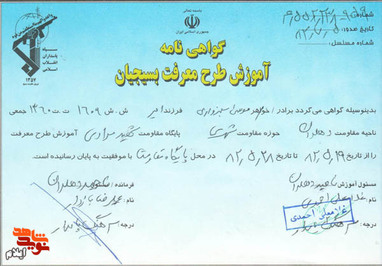 بسمه تعالی
جمهوری اسلامی ایران
شماره:
تاریخ صدور:
شماره مسلسل:
گواهی نامه
آموزش طرح معرفت بسیجیان
سپاه
پاسداران
انقلاب
اسلامی
بدینوسیله گواهی می گردد برادر / خواهر مومن سبزواری فرزند امیر ش. ش ۱۶۰۹ ت. ت ۱۳۶۰ جمعی
ناحیه مقاومت دهلران حوزه مقاومت شهری پایگاه مقاومت آموزش طرح معرفت
را از تاریخ ۸۲,۵,۱۹ تا تاریخ ۸۲,۵,۲۸ در محل با موفقیت به پایان رسانیده است.
مسئول آموزش ناحیه دهلران
غلامعلی احمدی
غلامعلی احمدی
درجه:
فرمانده / دهلران
درجه: سرهنگ پاسدار
نوید شاهد
ایلام